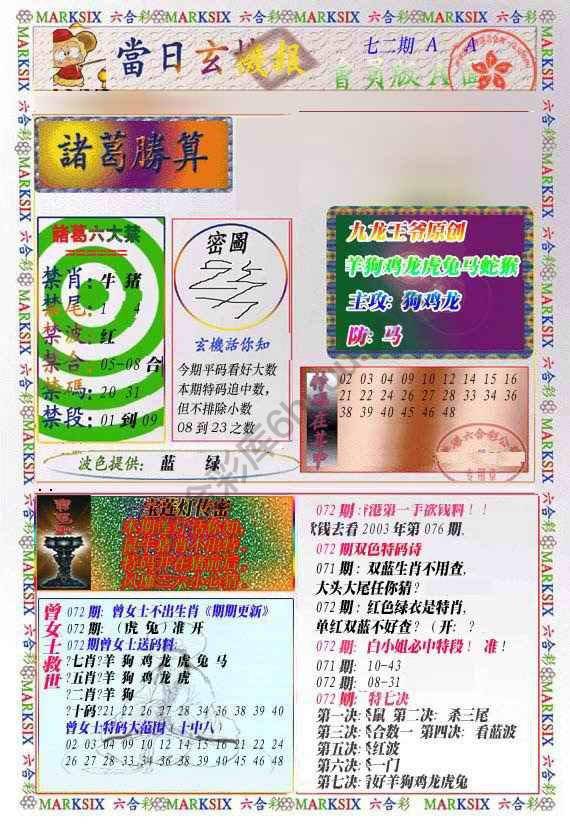 MARKSIX 六合彩 MARKSIX 六合彩 MARKSIX 六合彩 MARKSIX 六合彩
當日玄機报
七二期 A A
諸葛勝算
諸葛六大禁
禁肖: 牛 猪
禁尾: 1 4
禁波: 红
禁合: 05-08 合
禁碼: 20 31
禁段: 01 到 09
密圖
玄機話你知
今期平码看好大数
本期特码追中数,
但不排除小数
08 到 23 之数
波色提供: 蓝 绿
九龙王爷原创
羊狗鸡龙虎兔马蛇猴
主攻: 狗鸡龙
防: 马
02 03 04 09 10 12 14 15 16
21 22 26 27 28 33 34 35 36
38 39 40 45 46 48
宝莲灯传密
曾女士救世
072 期: 曾女士不出生肖《期期更新》
072 期: (虎 兔) 准 开
072 期曾女士送码料:
?七肖?羊 狗 鸡 龙 虎 兔 马
?五肖?羊 狗 鸡 龙 虎
?二肖?羊 狗
?十码?21 22 26 27 28 34 36 38 39 40
曾女士特码大范围〔十中八〕
02 03 04 09 10 12 14 15 16 21 22 24
26 27 28 33 34 35 36 39 40 45 46 48
072 期: 港第一手欲钱料!!
欲钱去看 2003 年第 076 期,
072 期双色特码诗
071 期: 双蓝生肖不用查,
大头大尾任你猜?
072 期: 红色绿衣是特肖,
单红双蓝不好查? (开: ?
072 期: 白小姐必中特段! 准!
071 期: 10-43
072 期: 08-31
072 期: 特七决
第一决:杀鼠 第二决: 杀三尾
第三决:杀合数一 第四决: 看蓝波
第五决:杀红波
第六决:杀一门
第七决:看好羊狗鸡龙虎兔
MARKSIX 六合彩 MARKSIX 六合彩 MARKSIX 六合彩 MARKSIX 六合彩